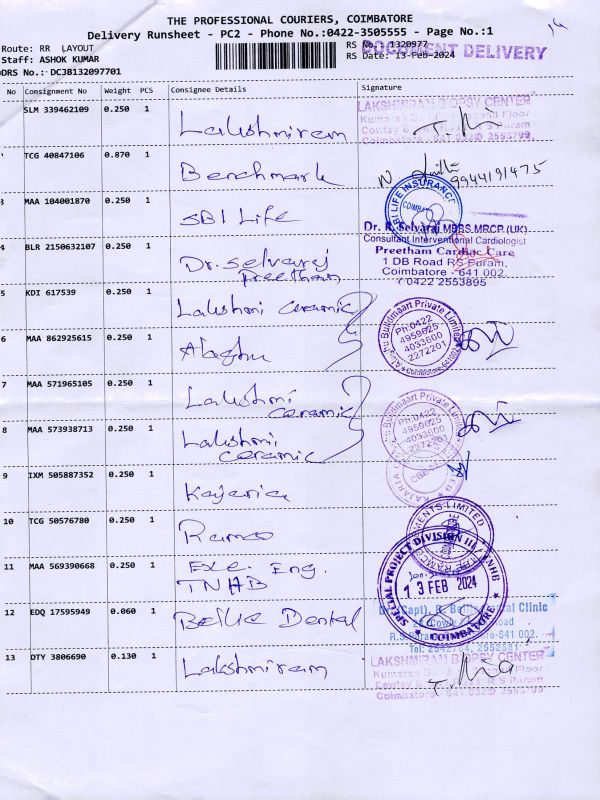 THE PROFESSIONAL COURIERS, COIMBATORE
Delivery Runsheet - PC2 - Phone No.:0422-3505555 - Page No.:1
Route: RR LAYOUT
RS No.: 1320977
DOCUMENT DELIVERY
Staff: ASHOK KUMAR
RS Date: 13-Feb-2024
DRS No.: DCJB132097701
No Consignment No Weight PCS Consignee Details Signature
SLM 339462109 0.250 1 Lakshmiram
LAKSHMIRAM BIOPSY CENTER
TCG 40847106 0.870 1 Benchmark
9944191475
MAA 104001870 0.250 1 SBI Life
SBI LIFE INSURANCE
4 BLR 2150632107 0.250 1 Dr. Selvaraj
Preetham
Dr. R. Selvaraj MBBS.MRCP (UK)
Consultant Interventional Cardiologist
Preetham Cardiac Care
1 DB Road RS Puram,
Coimbatore - 641 002.
0422 2553895
5 KDI 617539 0.250 1 Lakshmi ceramic
6 MAA 862925615 0.250 1 Alaghu
Alaghu Buildmaart Private Limited
Ph:0422
4959625
4033600
2272201
7 MAA 571965105 0.250 1 Lakshmi
ceramic
8 MAA 573938713 0.250 1 Lakshmi
ceramic
Buildmaart Private Limited
Ph:0422
4959625
4033600
2272201
9 IXM 505887352 0.250 1 Kajaria
10 TCG 50576780 0.250 1 Ramco
11 MAA 569390668 0.250 1 Exe. Eng.
TNHB
SPECIAL PROJECT DIVISION III TNHB
13 FEB 2024
COIMBATORE
12 EDQ 17595949 0.060 1 Bellie Dental
13 OTY 3806690 0.130 1 Lakshmiram
LAKSHMIRAM BIOPSY CENTER